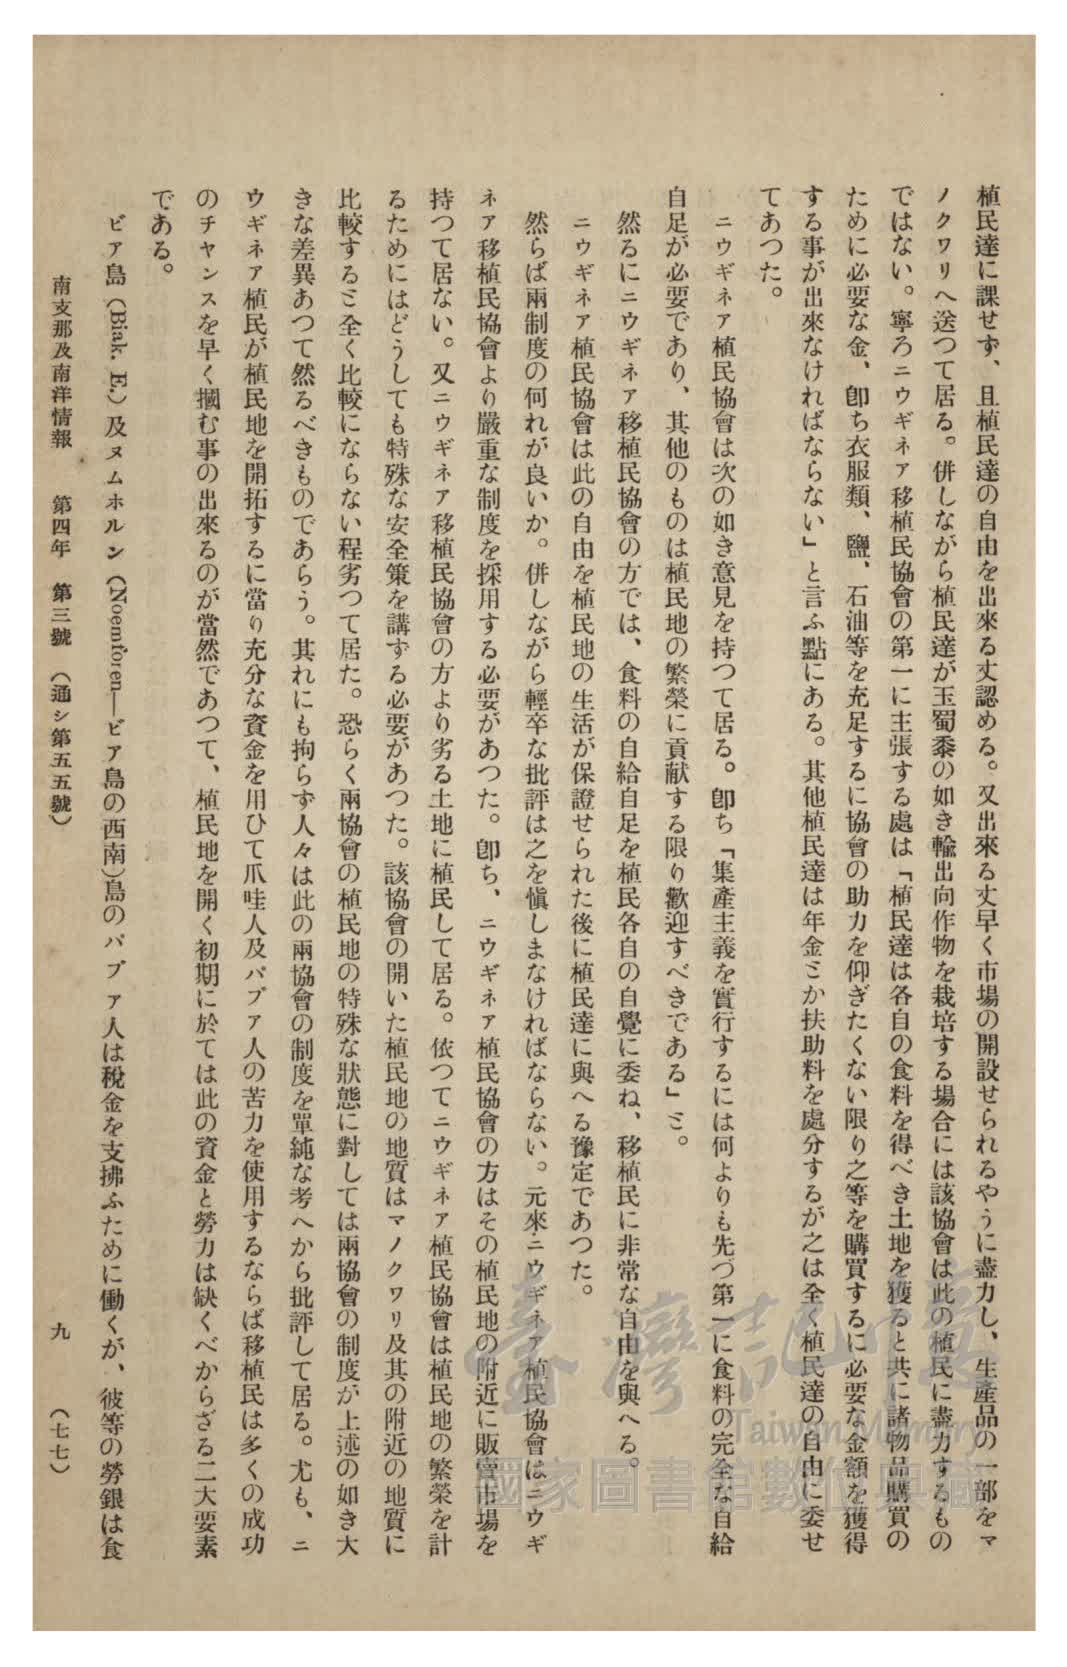 植民達に課せず、且植民達の自由を出來る丈認める。又出來る丈早く市場の開設せられるやうに盡力し、生產品の一部をマ
ノクワリへ送つて居る。併しながら植民達が玉蜀黍の如き輸出向作物を栽培する場合には該協會は此の植民に盡力するもの
ではない。寧ろニウギネア移植民協會の第一に主張する處は「植民達は各自の食料を得べき土地を獲ると共に諸物品購買の
ために必要な金、卽ち衣服類、鹽、石油等を充足するに協會の助力を仰ぎたくない限り之等を購買するに必要な金額を獲得
する事が出來なければならない」と言ふ點にある。其他植民達は年金ミか扶助料を處分するが之は全く植民達の自由に委せ
てあつた。
ニウギネア植民協會は次の如き意見を持つて居る。卽ち「集產主義を實行するには何よりも先づ第一に食料の完全な自給
自足が必要であり、其他のものは植民地の繁榮に貢献する限り歡迎すべきである」ミ。
然るにニウギネア移植民協會の方では、食料の自給自足を植民各自の自覺に委ね、移植民に非常な自由を與へる。
ニウギネア植民協會は此の自由を植民地の生活が保證せられた後に植民達に與へる豫定であつた。
然らば兩制度の何れが良いか。併しながら輕卒な批評は之を愼しまなければならない。元來ニウギネア植民協會はニウギ
ネア移植民協會より嚴重な制度を採用する必要があつた。卽ち、ニウギネア植民協會の方はその植民地の附近に販賣市場を
持つて居ない。又ニウギネア移植民協會の方より劣る土地に植民して居る。依つてニウギネア植民協會は植民地の繁榮を計
るためにはどうしても特殊な安全策を講ずる必要があつた。該協會の開いた植民地の地質はマノクワリ及其の附近の地質に
比較するミ全く比較にならない程劣つて居た。恐らく兩協會の植民地の特殊な狀態に對しては兩協會の制度が上述の如き大
きな差異あつて然るべきものであらう。其れにも拘らず人々は此の兩協會の制度を單純な考へから批評して居る。尤も、ニ
ウギネア植民が植民地を開拓するに當り充分な資金を用ひて爪哇人及パプア人の苦力を使用するならば移植民は多くの成功
のチヤンスを早く摑む事の出來るのが當然であつて、植民地を開く初期に於ては此の資金と勞力は缺くべからざる二大要素
である。
ビア島（Biak. E.）及ヌムホルン（Noemforen―ビア島の西南）島のパプア人は稅金を支拂ふために働くが、彼等の勞銀は食
南支那及南洋情報　第四年　第三號　（通シ第五五號）　九　（七七）
臺灣記憶
Taiwan Memory
國家圖書館數位典藏